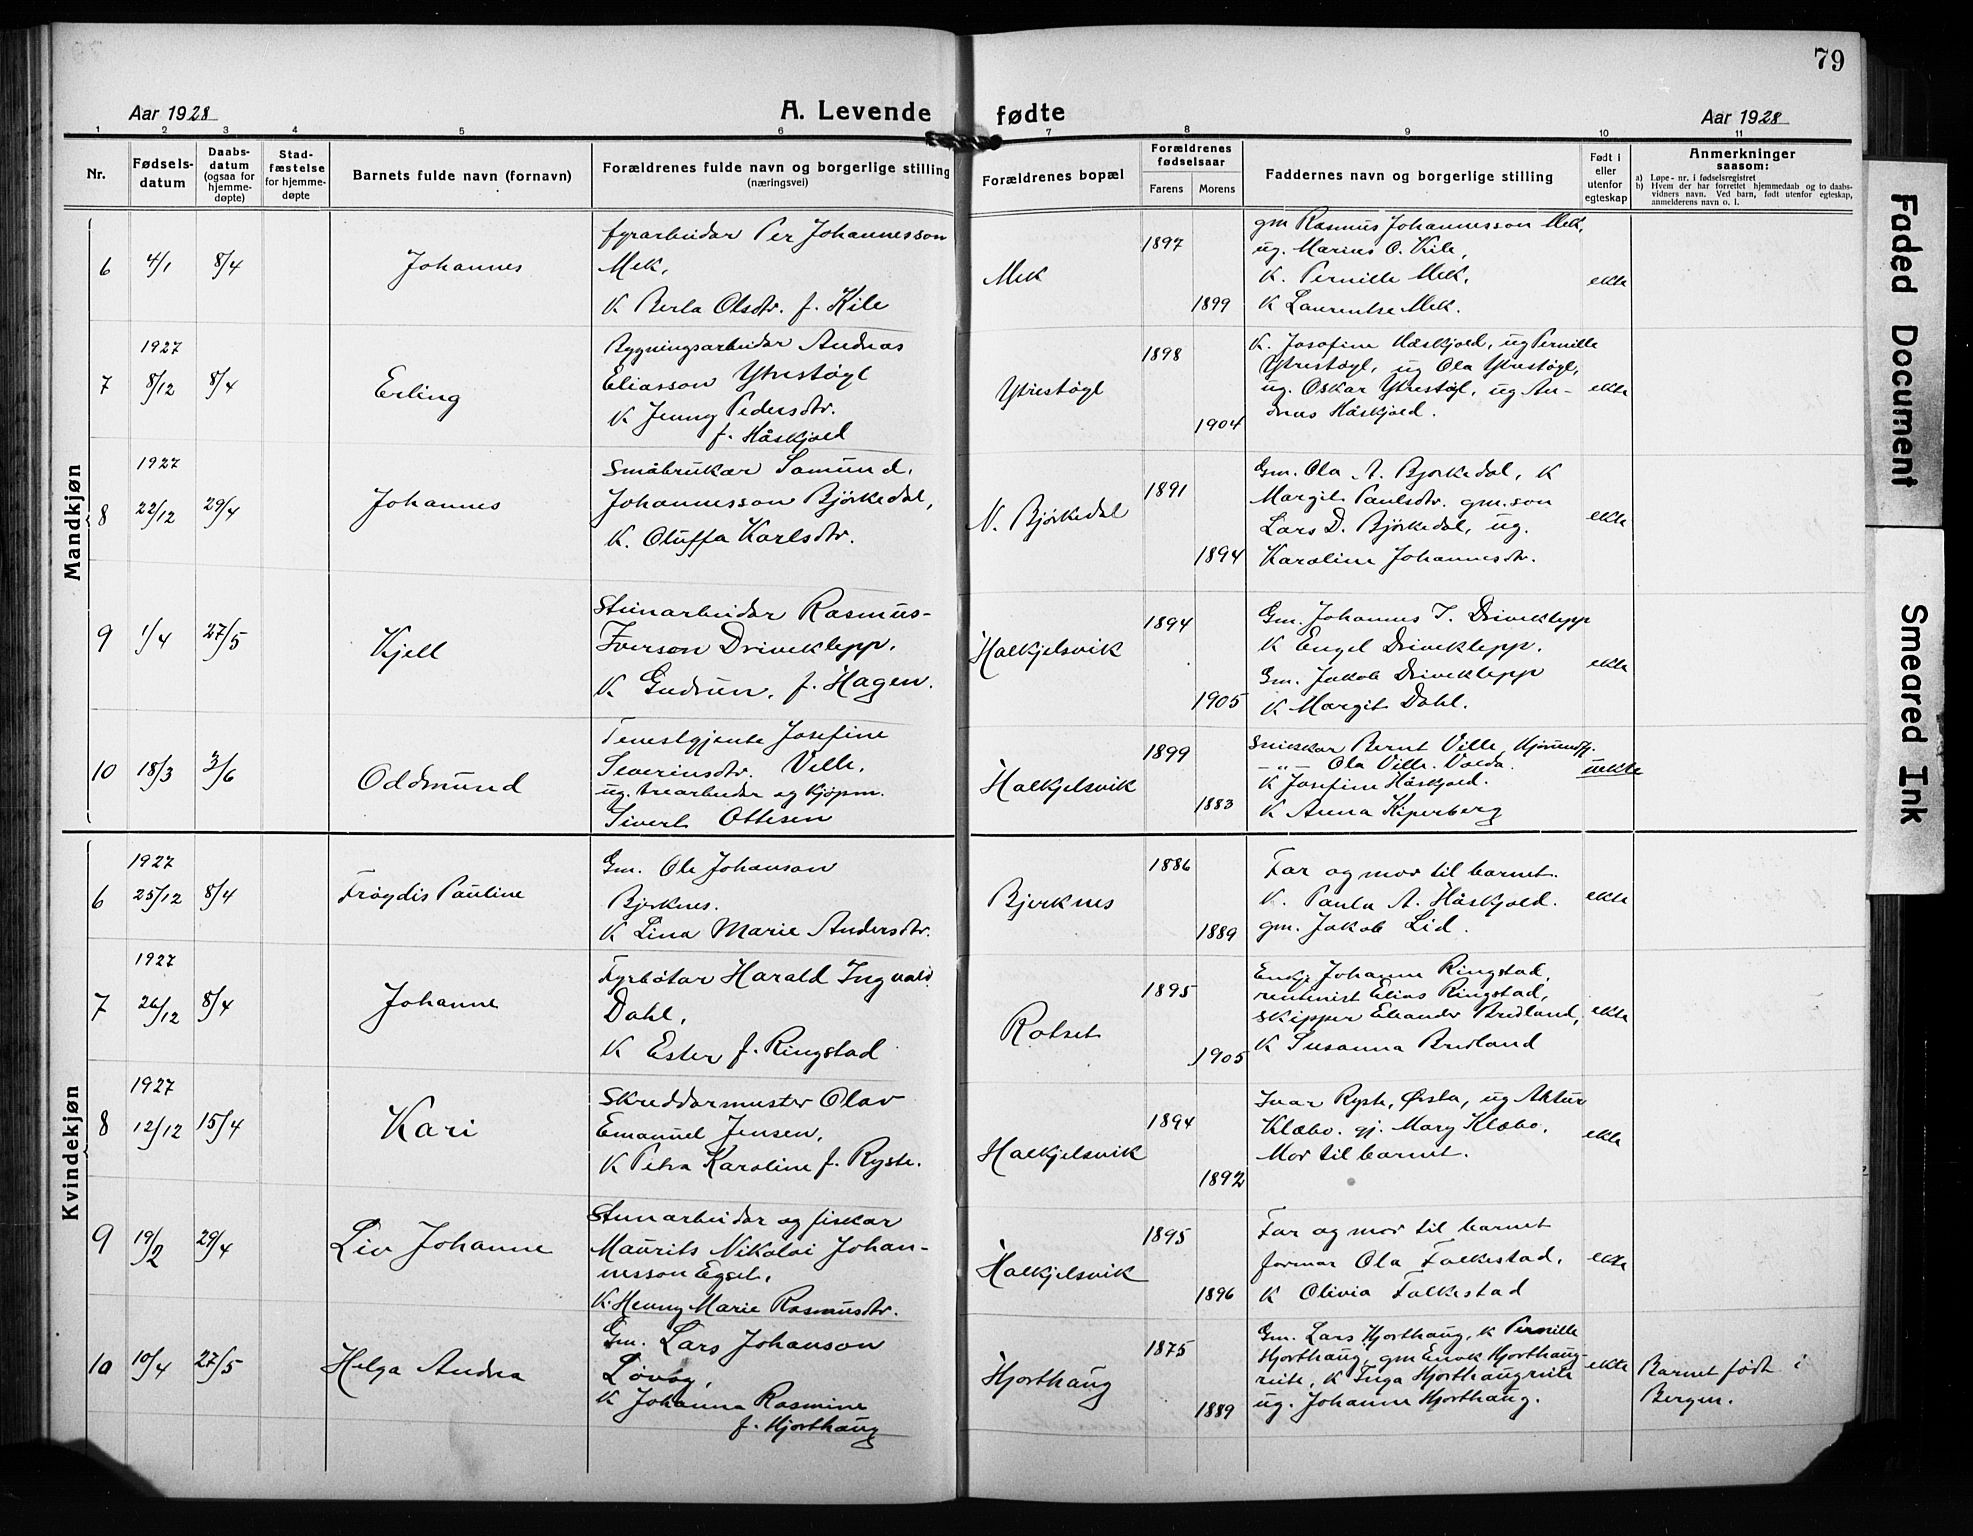 79
Aar 1928
A. Levende fødte
Aar 1928
1 2 3 4 5 6 7 8 9 10 11
Nr.
Fødsels-
datum
Daabs-
datum
(ogsaa for
hjemme-
døpte)
Stad-
fæstelse
for hjemme-
døpte
Barnets fulde navn (fornavn)
Forældrenes fulde navn og borgerlige stilling
(næringsvei)
Forældrenes bopæl
Forældrenes
fødselsaar
Farens Morens
Faddernes navn og borgerlige stilling
Født i
eller
utenfor
egteskap
Anmerkninger
saasom:
a) Løpe-nr. i fødselsregistret
b) Hvem der har forrettet hjemmedaab og to daabs-
vidners navn. Ved barn, født utenfor egteskap,
anmelderens navn o. l.
Mandkjøn
6 4/1 8/4 Johannes
fyrarbeidar Per Johannesson
Mek,
K Berla Olsdtr. f. Kile
Mek
1897
1899
gm Rasmus Johannesson Mek,
ug. Marius O. Kile,
K. Pernille Mek,
K Laurentse Mek.
ekte
7 1927
8/12 8/4 Erling
Bygningsarbeidar Andreas
Eliasson Ytrestøyl
K Jenny Pedersdtr.
f. Håskjold
Ytrestøyl
1898
1904
K. Josefine Håskjold, ug Pernille
Ytrestøyl, ug Ola Ytrestøyl,
ug. Oskar Ytrestøyl, ug An-
dreas Håskjold.
ekte
8 1927
22/12 29/4 Johannes
Småbrukar Samund,
Johannesson Bjørkedal,
K. Oluffa Karlsdtr.
N. Bjørkedal
1891
1894
Gm. Ola A. Bjørkedal, K
Margit Paulsdtr. gm.son
Lars D. Bjørkedal, ug.
Karoline Johannesdtr.
ekte
9 1/4 27/5 Kjell
Steinarbeidar Rasmus
Iverson Driveklepp,
K Gudrun, f. Hagen.
Halkjelsvik
1894
1905
Gm. Johannes I. Driveklepp
K Engel Driveklepp.
Gm. Jakob Driveklepp
K Margit Dahl.
ekte
10 18/3 3/6 Oddmund
Tenestgjente Josefine
Severinsdtr. Velle,
ug. trearbeider og kjøpm.
Sivert Ottesen
Halkjelsvik
1899
1883
Snikkar Bernt Ville, Hjørundfj.
—"— Ola Ville. Volda.
K Josefine Håskjold.
K Anna Kiperberg
uekte
Kvindekjøn
6 1927
25/12 8/4 Frøydis Pauline
Gm. Ole Johanson
Bjerknes.
K Lina Marie Andersdtr.
Bjerknes
1886
1889
Far og mor til barnet.
K. Paula A. Håskjold.
gm. Jakob Lid.
ekte
7 1927
26/12 8/4 Johanne
Fyrbøtar Harald Ingvald
Dahl,
K Ester f. Ringstad
Rotset
1895
1905
Enkje Johanne Ringstad,
rentenist Elias Ringstad,
skipper Eleander Bredland,
K Susanna Bredland
ekte
8 1927
12/12 15/4 Kari
Skreddarmester Olav
Emanuel Jensen,
K Petra Karoline f. Ryste.
Halkjelsvik
1894
1892
Ivar Ryste, Ørsta, ug Aktur
Klæbo. gj. Mary Klæbo,
Mor til barnet.
ekte
9 19/2 29/4 Liv Johanne
Steinarbeidar og fiskar
Maurits Nikolai Johan-
nesson Egset,
K. Henny Marie Rasmusdtr.
Halkjelsvik
1895
1896
Far og mor til barnet
formar Ola Folkestad,
K Olivia Folkestad
ekte
10 10/4 27/5 Helga Andrea
Gm. Lars Johanson
Løvøy,
K Johanna Rasmine
f. Hjorthaug
Hjorthaug
1875
1889
Gm. Lars Hjorthaug, K Pernille
Hjorthaug, gm Enok Hjorthaug-
reite, K Inga Hjorthaugreite
ug. Johanne Hjorthaug.
ekte
Barnet født i
Bergen.
Faded Document
Smeared Ink